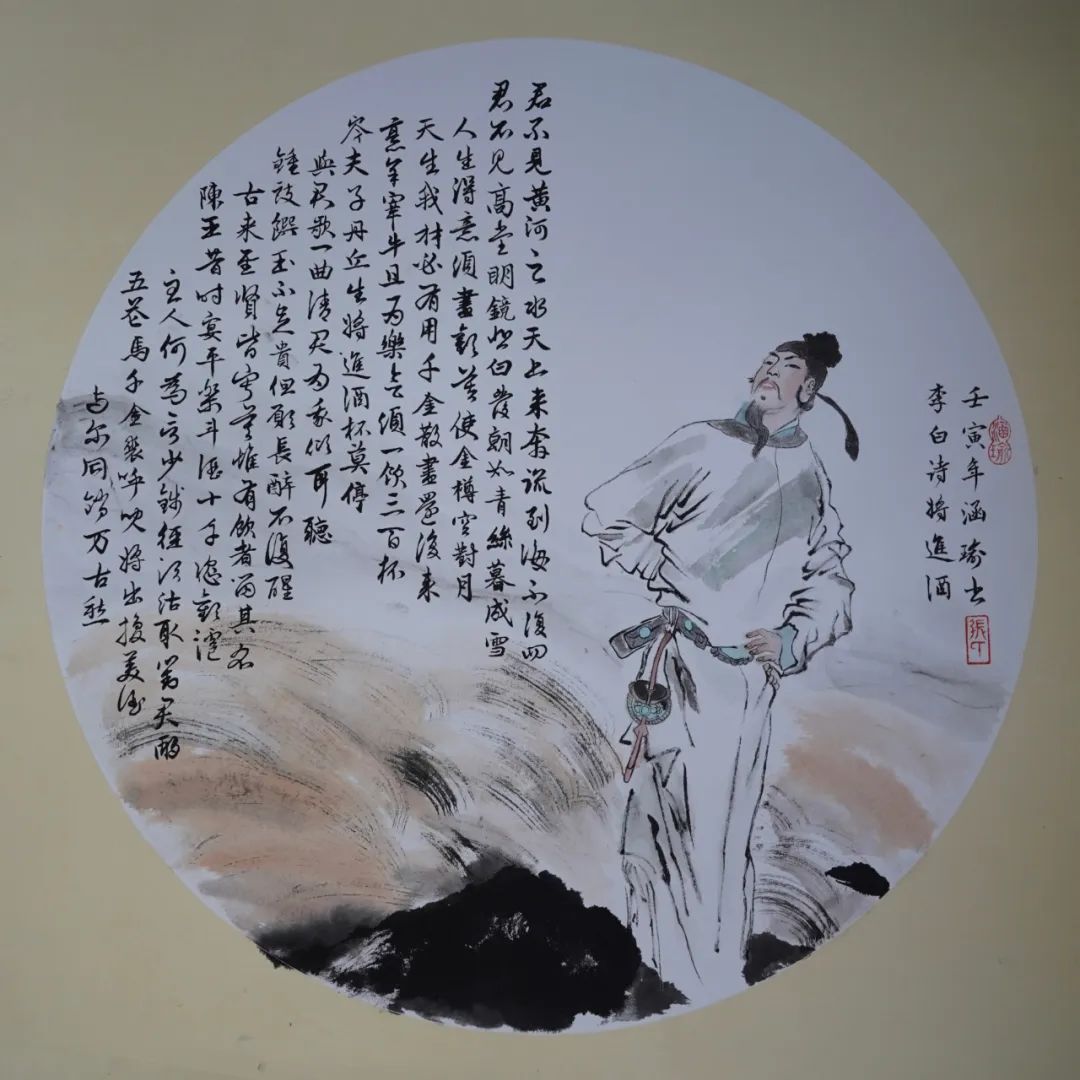 君不見黄河之水天上来奔流到海不復回
君不見高堂明鏡悲白發朝如青絲暮成雪
人生得意须盡歡莫使金樽空對月
天生我材必有用千金散盡還復来
烹羊宰牛且为樂會须一饮三百杯
岑夫子丹丘生将進酒杯莫停
與君歌一曲请君为我倾耳聽
鍾鼓饌玉不足贵但願長醉不復醒
古来圣贤皆寂寞惟有飲者留其名
陳王昔时宴平樂斗酒十千恣歡謔
主人何為言少錢徑须沽取對君酌
五花馬千金裘呼児将出換美酒
与尔同销万古愁
壬寅年涵瑜书
李白诗将進酒
涵瑜